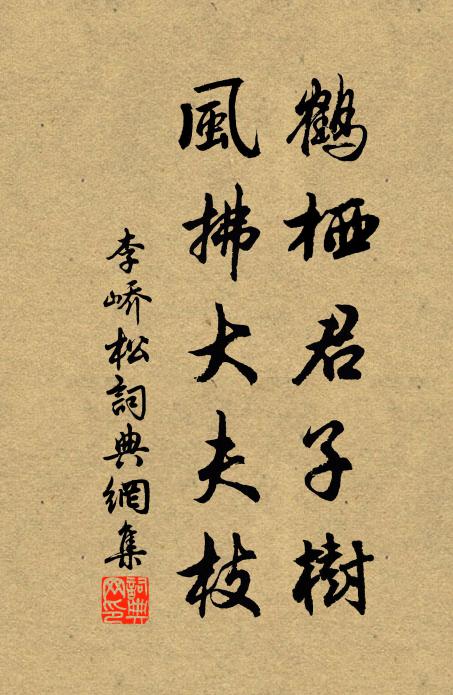 鶴栖君子樹
風拂大夫枝
李嶠松詞典網集
詞典网印